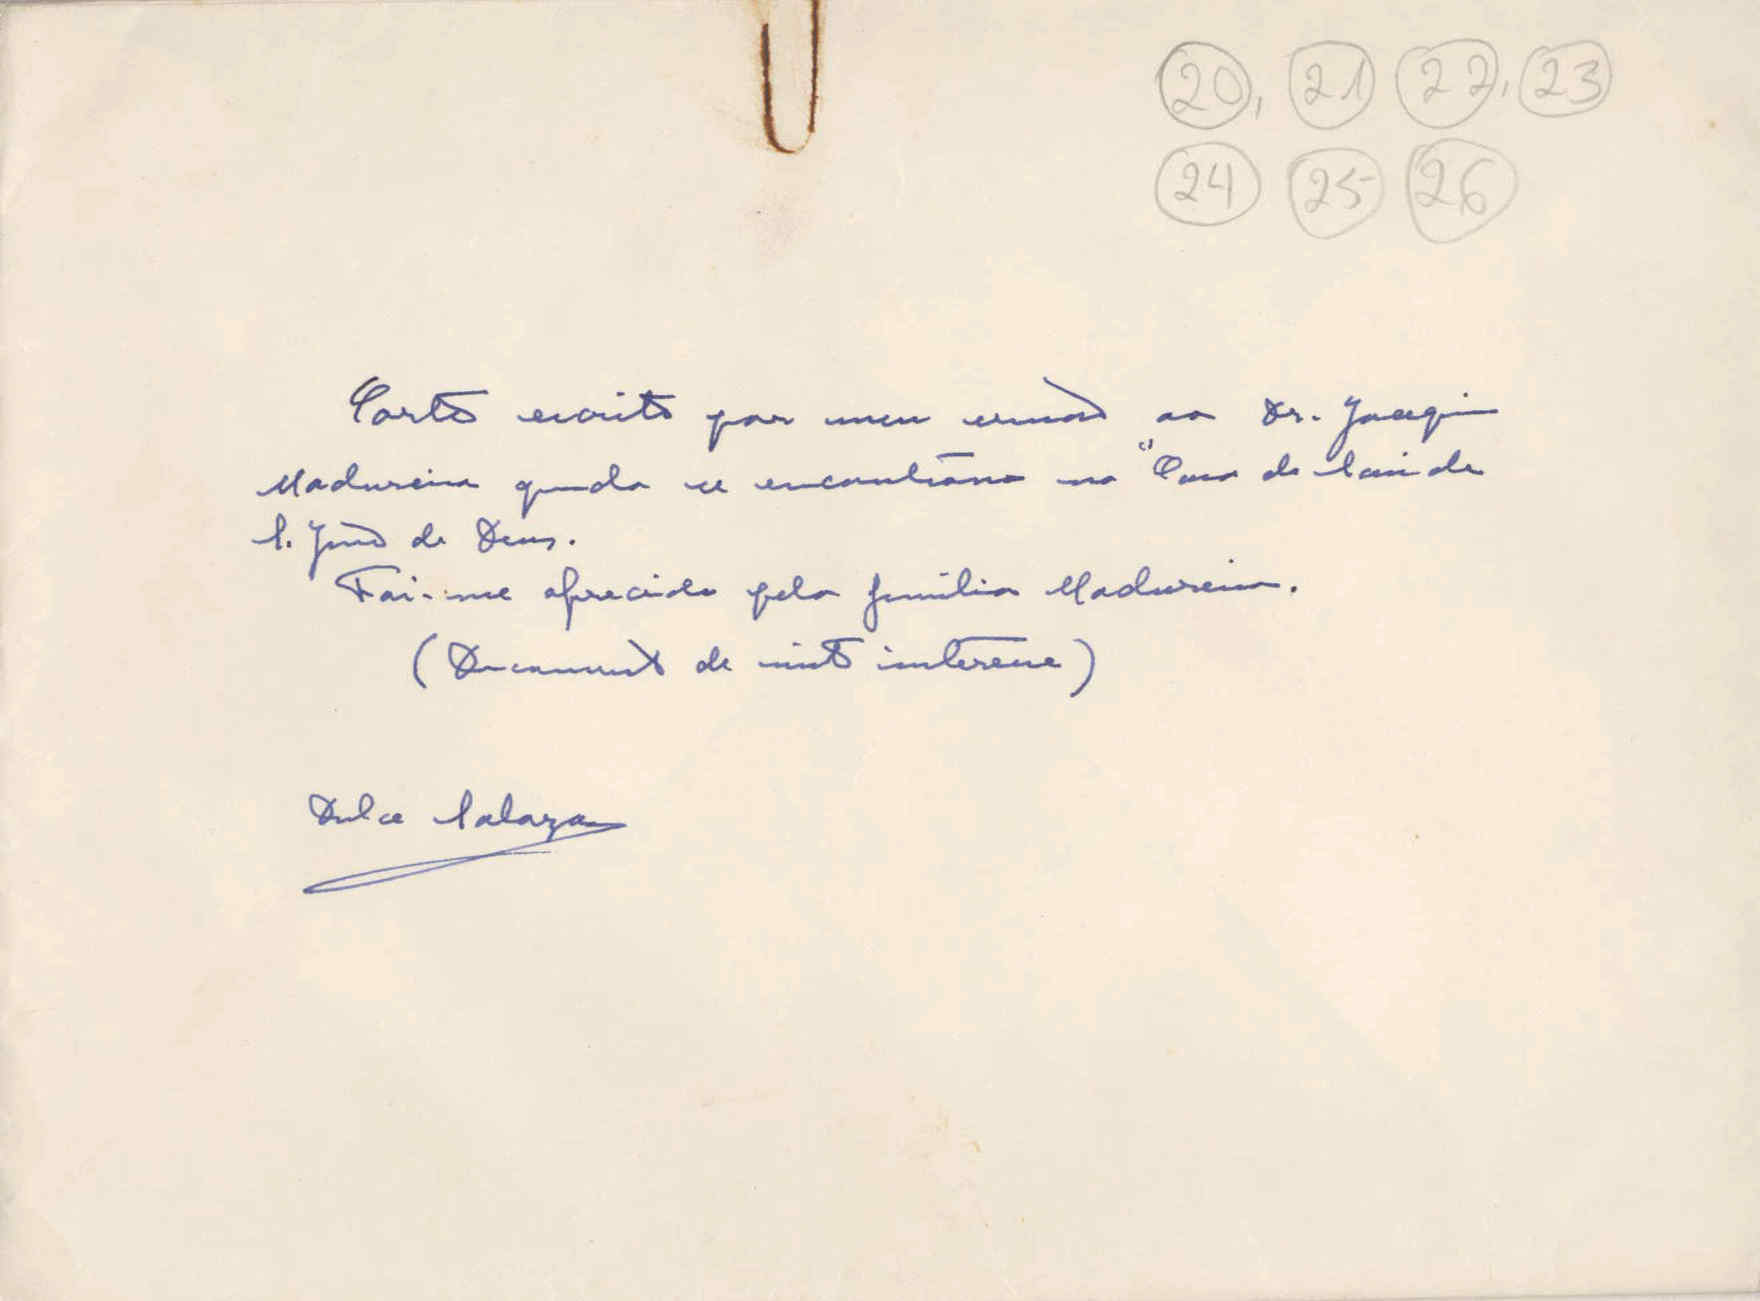 20, 21 22, 23
24 25 26
Carta escrita por meu irmão ao Dr. Joaquim
Madureira quando se encontrava na "Casa de Saúde
S. João de Deus.
Foi-me oferecida pela família Madureira.
(Documento de muito interesse)
Dulce Salazar